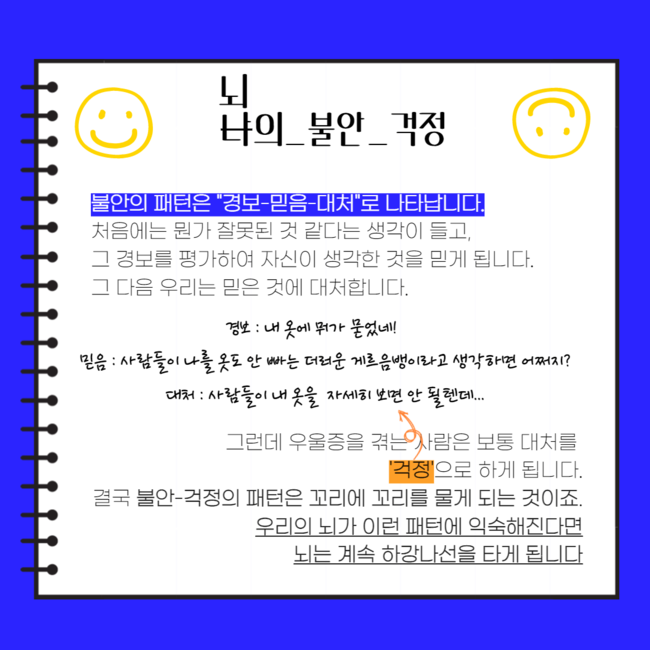 뇌
나의_불안_걱정
불안의 패턴은 "경보-믿음-대처"로 나타납니다.
처음에는 뭔가 잘못된 것 같다는 생각이 들고,
그 경보를 평가하여 자신이 생각한 것을 믿게 됩니다.
그 다음 우리는 믿은 것에 대처합니다.
경보 : 내 옷에 뭐가 묻었네!
믿음 : 사람들이 나를 옷도 안 빠는 더러운 게르음뱅이라고 생각하면 어쩌지?
대처 : 사람들이 내 옷을 자세히 보면 안 될텐데...
그런데 우울증을 겪는 사람은 보통 대처를
'걱정'으로 하게 됩니다.
결국 불안-걱정의 패턴은 꼬리에 꼬리를 물게 되는 것이죠.
우리의 뇌가 이런 패턴에 익숙해진다면
뇌는 계속 하강나선을 타게 됩니다